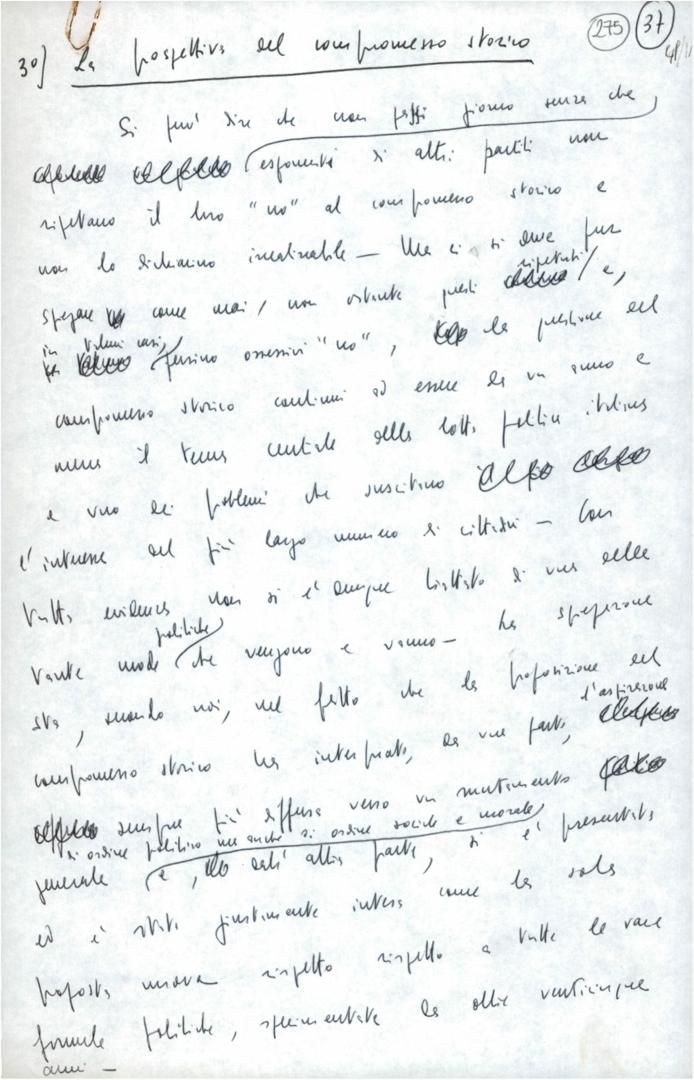 275 37
3°) La prospettiva del compromesso storico
Si può dire che non passi giorno senza che
esponenti di altri partiti non
ripetano il loro "no" al compromesso storico e
non lo dichiarino irrealizzabile — Ma ci si deve pur
spiegare come mai, non ostante questi ripetuti e,
in taluni casi, persino ossessivi "no", la questione del
compromesso storico continui ad essere da un anno e
mezzo il tema centrale della lotta politica italiana
e uno dei problemi che suscitano
l'interesse del più largo numero di cittadini — Con
tutta evidenza non si è dunque trattato di una delle
tante mode politiche che vengono e vanno — La spiegazione
sta, secondo noi, nel fatto che la proposizione del
compromesso storico ha interpretato, da una parte, l'aspirazione
sempre più diffusa verso un mutamento
generale di ordine politico ma anche di ordine sociale e morale, e, dall'altra parte, si è presentata
ed è stata giustamente intesa come la sola
proposta nuova rispetto rispetto a tutte le varie
formule politiche, sperimentate da oltre venticinque
anni —